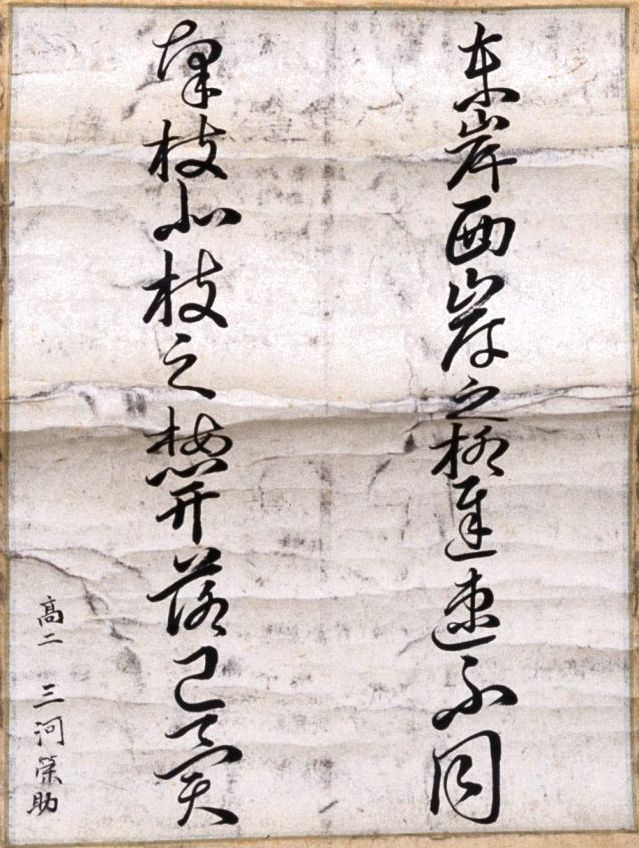 東岸西岸之柳遅速不同
南枝北枝之梅開落已異
高二 三河榮助